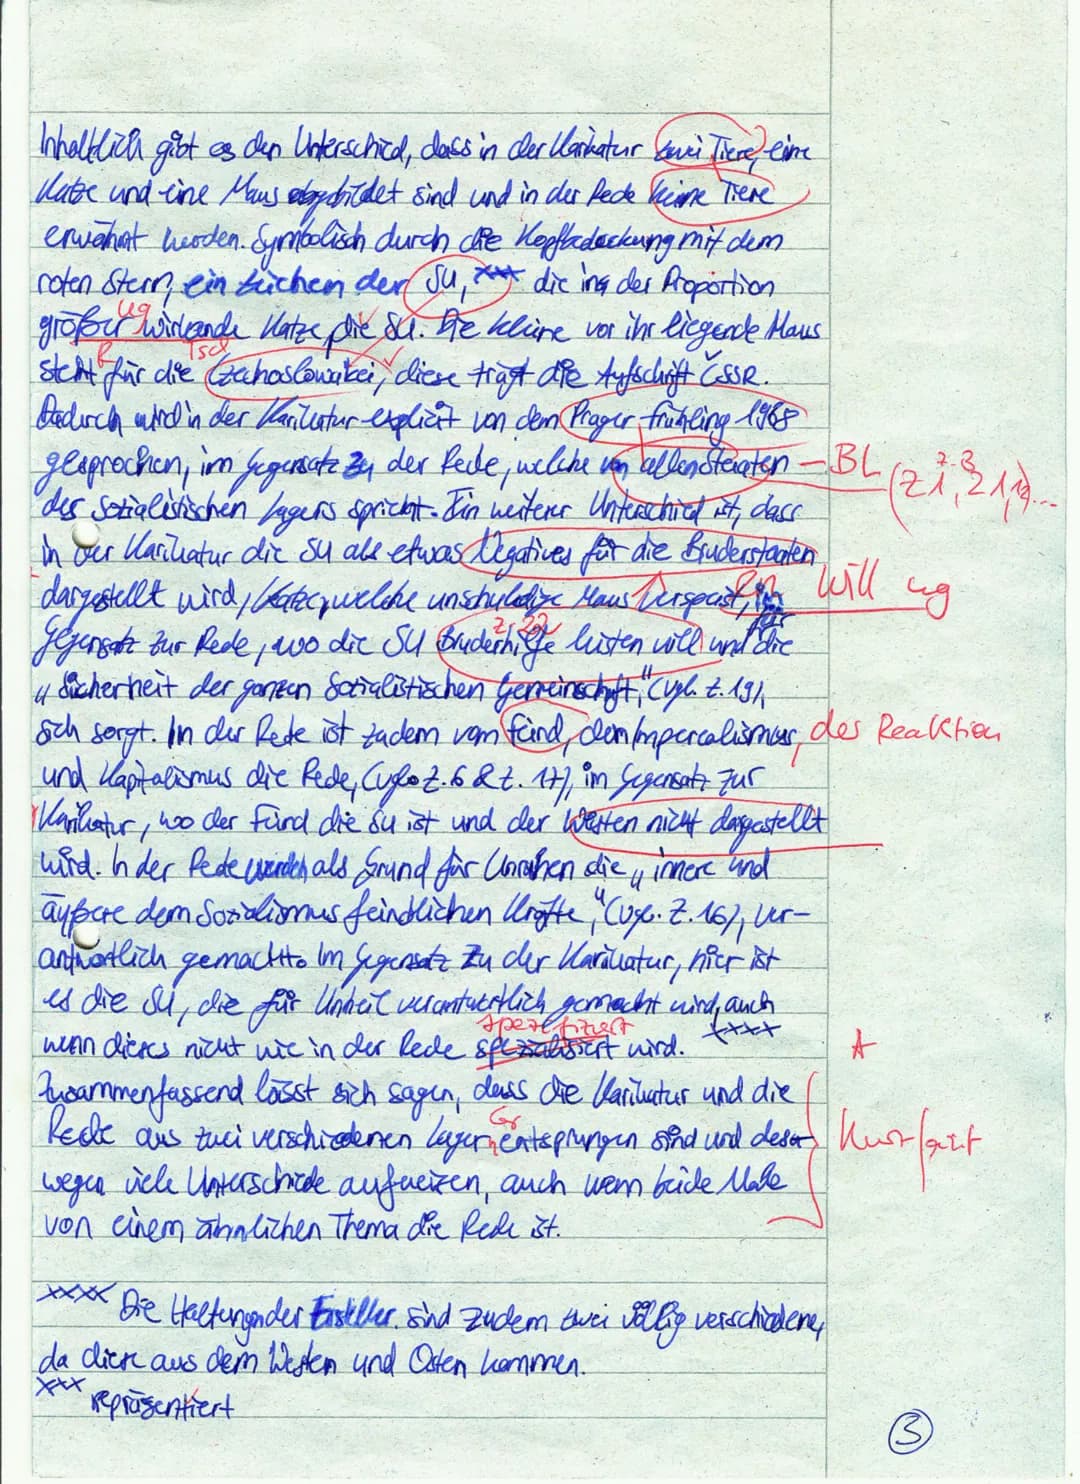 Inhaltlich gibt es den Unterschied, dass in der Karikatur zwei Tiere, eine
Katze und eine Maus abgebildet sind und in der Rede keine Tiere
erwähnt werden. Symbolisch durch die Kopfbedeckung mit dem
roten Stern, ein Zeichen der SU, xxx die in der Proportion
ug
größer wirkende Katze die SU. Die kleine vor ihr liegende Maus
R Tsch
steht für die Czechoslowakei, diese trägt die Aufschrift ČSSR.
Dadurch wird in der Karikatur explizit von dem Prager Frühling 1968
gesprochen, im Gegensatz zu der Rede, welche von allen Staaten – BL
(z.B. Z 1, 2 11, ...
des sozialistischen Lagers spricht. Ein weiterer Unterschied ist, dass
in der Karikatur die SU als etwas Negatives für die Bruderstaaten
dargestellt wird, Katze, welche unschuldige Maus verspeist, im will ug
Z. 22
Gegensatz zur Rede, wo die SU Bruderhilfe leisten will und für die
„Sicherheit der ganzen Sozialistischen Gemeinschaft," (vgl. Z. 19),
sich sorgt. In der Rede ist zudem vom Feind, dem Impercalismus, des Reaktion
und Kapitalismus die Rede, (vgl. Z. 6 & Z. 17), im Gegensatz zur
Karikatur, wo der Feind die SU ist und der Westen nicht dargestellt
wird. In der Rede werden als Grund für Unruhen die „innere und
äußere dem Sozialismus feindlichen Kräfte," (vgl. Z. 16), ver-
antwortlich gemacht. Im Gegensatz zu der Karikatur, hier ist
es die SU, die für Unheil verantwortlich gemacht wird, auch
spezifiziert xxxx
wenn dieses nicht wie in der Rede spezialisiert wird. A
Zusammenfassend lässt sich sagen, dass die Karikatur und die
Gr
Rede aus zwei verschiedenen Lager n entsprungen sind und des-
Kurz/gut
wegen viele Unterschiede aufweizen, auch wenn beide Male
von einem ähnlichen Thema die Rede ist.
xxxx Die Haltungen der Ersteller sind zudem zwei völlig verschiedene,
da diese aus dem Westen und Osten kommen.
xxx repräsentiert
3